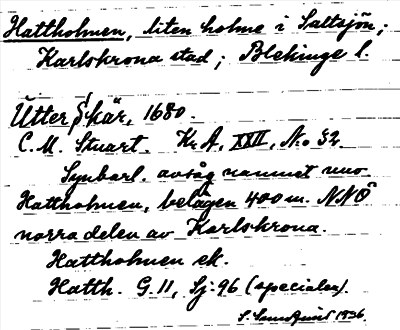 Hattholmen, liten holme i Saltsjön;
Karlskrona stad; Blekinge l.
Utter Skär, 1680.
C. M. Stuart. Kr. A, XXII, No 32.
Synbarl. avsåg namnet nuv.
Hattholmen, belägen 400 m. NNÖ
norra delen av Karlskrona.
Hattholmen ek.
Hatth. G. 11, Sj. 96 (specialen).
1936.